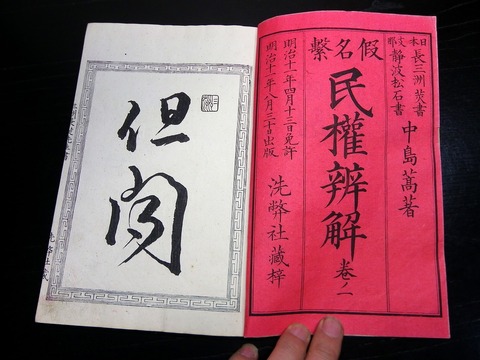 日本長三洲書
支那静波松石書
中島蒿著
假名繫
民權辨解 卷ノ一
明治十一年四月十三日免許
明治十一年八月三十日出版
洗幣社藏梓
但聞